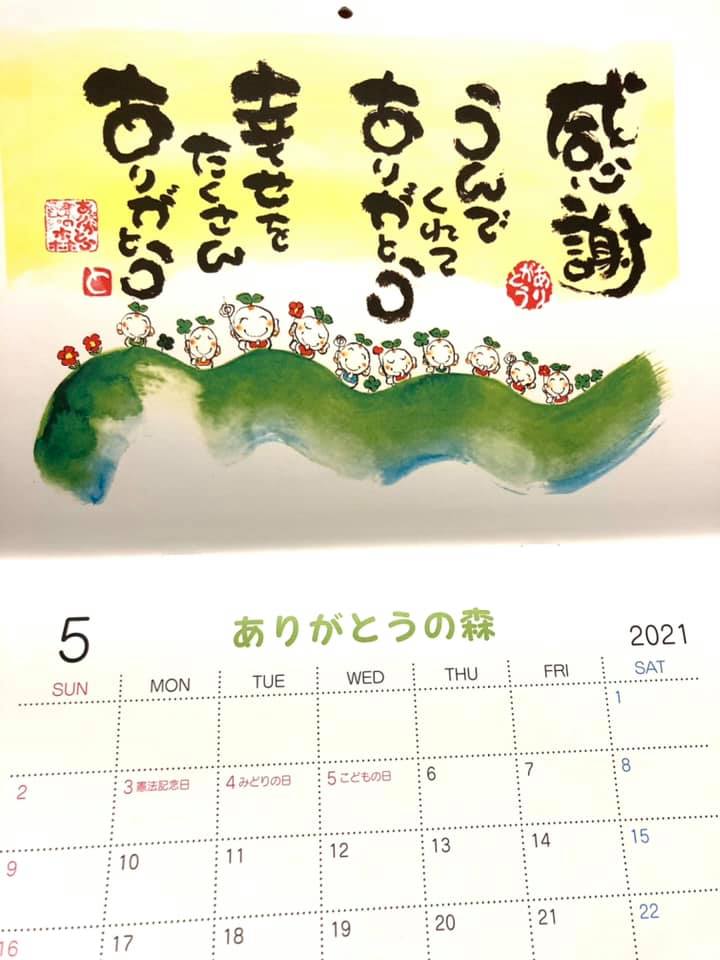 感謝
うんで
くれて
ありがとう
幸せを
たくさん
ありがとう
ありがとう
ありがとう
の森
5
ありがとうの森
2021
SUN MON TUE WED THU FRI SAT
1
2 3 憲法記念日 4 みどりの日 5 こどもの日 6 7 8
9 10 11 12 13 14 15
16 17 18 19 20 21 22